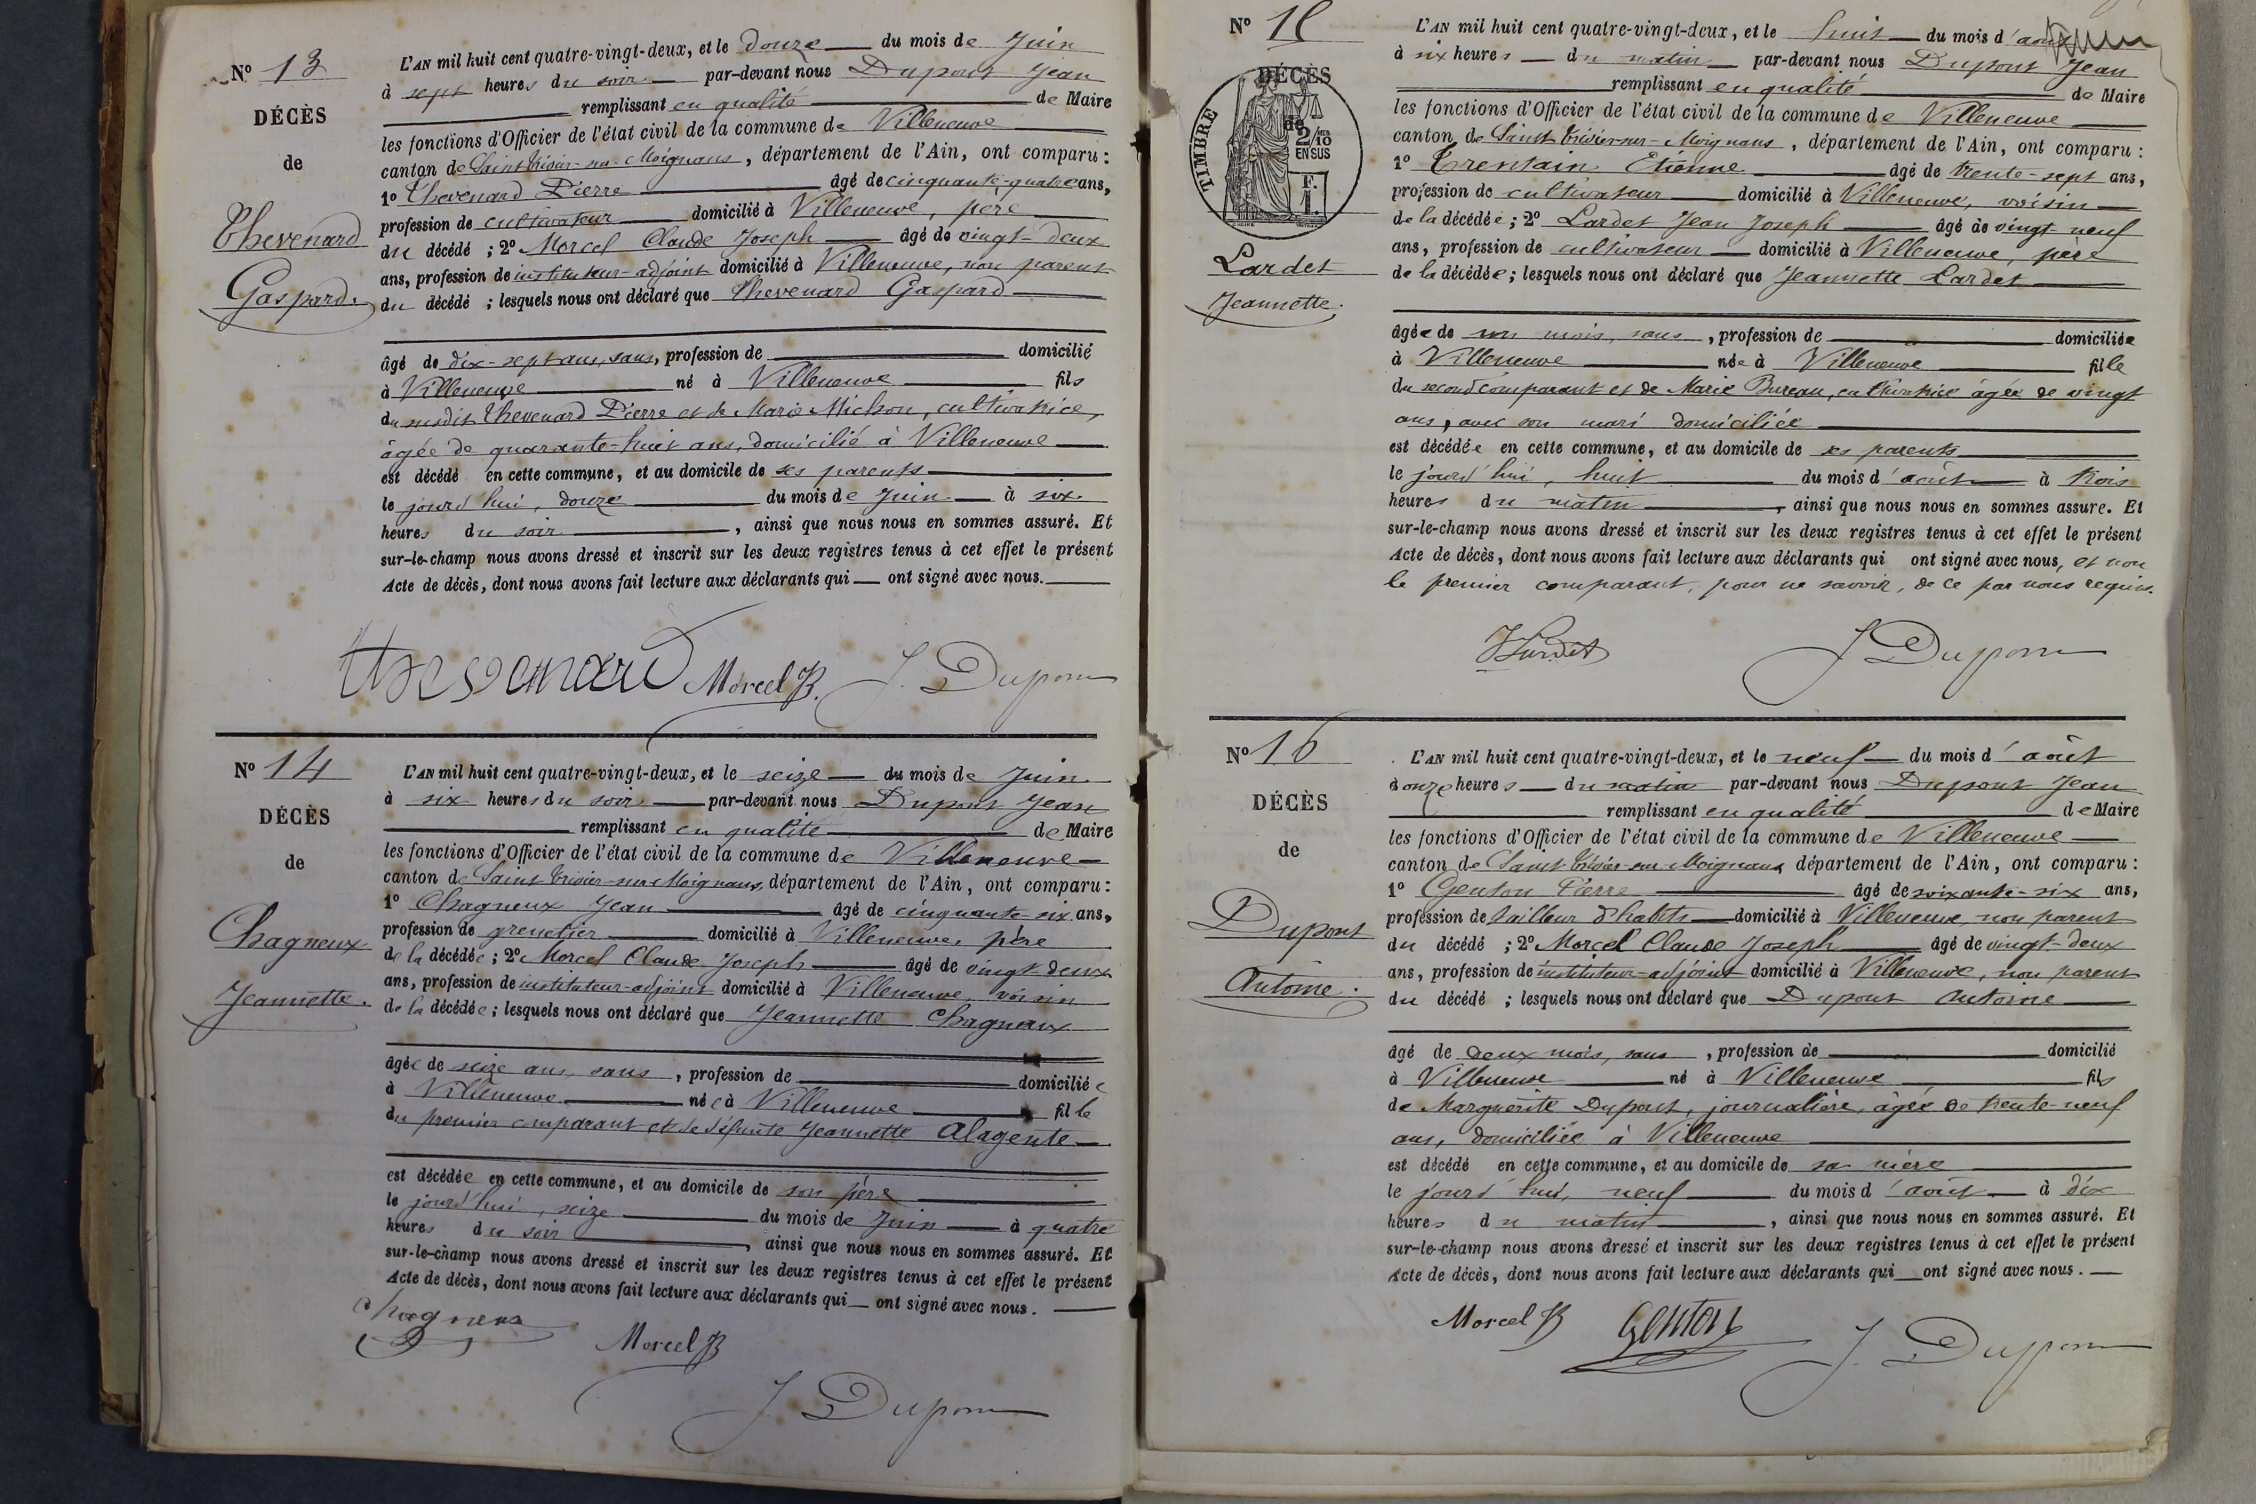 N° 13
DÉCÈS
de
Thevenard
Gaspard.
L'AN mil huit cent quatre-vingt-deux, et le douze du mois de Juin
à sept heures du soir par-devant nous Dupont Jean
remplissant en qualité de Maire
les fonctions d'Officier de l'état civil de la commune de Villeneuve
canton de Saint Trivier-sur-Moignans, département de l'Ain, ont comparu :
1° Thevenard Pierre âgé de cinquante-quatre ans,
profession de cultivateur domicilié à Villeneuve, père
du décédé ; 2° Morcel Claude Joseph âgé de vingt-deux
ans, profession de instituteur-adjoint domicilié à Villeneuve, non parent
du décédé ; lesquels nous ont déclaré que Thevenard Gaspard
âgé de dix-sept ans, sans, profession de domicilié
à Villeneuve né à Villeneuve fils
du susdit Thevenard Pierre et de Marie Michon, cultivatrice,
âgée de quarante-huit ans, domicilié à Villeneuve
est décédé en cette commune, et au domicile de ses parents
le jourd'hui, douze du mois de Juin à six
heures du soir, ainsi que nous nous en sommes assuré. Et
sur-le-champ nous avons dressé et inscrit sur les deux registres tenus à cet effet le présent
Acte de décès, dont nous avons fait lecture aux déclarants qui ont signé avec nous.
thevenard Morcel J. Dupont
N° 14
DÉCÈS
de
Chagneux
Jeannette.
L'AN mil huit cent quatre-vingt-deux, et le seize du mois de Juin
à six heures du soir par-devant nous Dupont Jean
remplissant en qualité de Maire
les fonctions d'Officier de l'état civil de la commune de Villeneuve
canton de Saint Trivier-sur-Moignans, département de l'Ain, ont comparu :
1° Chagneux Jean âgé de cinquante-six ans,
profession de grenetier domicilié à Villeneuve, père
de la décédée ; 2° Morcel Claude Joseph âgé de vingt-deux
ans, profession de instituteur-adjoint domicilié à Villeneuve, voisin
de la décédée ; lesquels nous ont déclaré que Jeannette Chagneux
âgée de seize ans, sans, profession de domiciliée
à Villeneuve née à Villeneuve fille
du premier comparant et de défunte Jeannette Alagente
est décédée en cette commune, et au domicile de son père
le jourd'hui, seize du mois de Juin à quatre
heures du soir, ainsi que nous nous en sommes assuré. Et
sur-le-champ nous avons dressé et inscrit sur les deux registres tenus à cet effet le présent
Acte de décès, dont nous avons fait lecture aux déclarants qui ont signé avec nous.
Chagneux
Morcel
J. Dupont
N° 15
DÉCÈS
de
TIMBRE
2/10
EN SUS
F.
1.
Lardet
Jeannette.
L'AN mil huit cent quatre-vingt-deux, et le huit du mois d'août
à six heures du matin par-devant nous Dupont Jean
remplissant en qualité de Maire
les fonctions d'Officier de l'état civil de la commune de Villeneuve
canton de Saint Trivier-sur-Moignans, département de l'Ain, ont comparu :
1° Trentain Etienne âgé de trente-sept ans,
profession de cultivateur domicilié à Villeneuve, voisin
de la décédée ; 2° Lardet Jean Joseph âgé de vingt-neuf
ans, profession de cultivateur domicilié à Villeneuve, père
de la décédée ; lesquels nous ont déclaré que Jeannette Lardet
âgée de mois, sans, profession de domiciliée
à Villeneuve née à Villeneuve fille
du second comparant et de Marie Bureau, cultivatrice âgée de vingt
ans, avec son mari domiciliée
est décédée en cette commune, et au domicile de ses parents
le jourd'hui, huit du mois d'août à trois
heures du matin, ainsi que nous nous en sommes assuré. Et
sur-le-champ nous avons dressé et inscrit sur les deux registres tenus à cet effet le présent
Acte de décès, dont nous avons fait lecture aux déclarants qui ont signé avec nous, et non
le premier comparant, pour ne savoir, de ce par nous requis.
J Lardet J. Dupont
N° 16
DÉCÈS
de
Dupont
Antoine.
L'AN mil huit cent quatre-vingt-deux, et le neuf du mois d'août
à onze heures du matin par-devant nous Dupont Jean
remplissant en qualité de Maire
les fonctions d'Officier de l'état civil de la commune de Villeneuve
canton de Saint Trivier-sur-Moignans département de l'Ain, ont comparu :
1° Genton Pierre âgé de soixante-six ans,
profession de tailleur d'habits domicilié à Villeneuve, non parent
du décédé ; 2° Morcel Claude Joseph âgé de vingt-deux
ans, profession de instituteur-adjoint domicilié à Villeneuve, non parent
du décédé ; lesquels nous ont déclaré que Dupont Antoine
âgé de deux mois, sans, profession de domicilié
à Villeneuve né à Villeneuve fils
de Marguerite Dupont, journalière, âgée de trente-neuf
ans, domiciliée à Villeneuve
est décédé en cette commune, et au domicile de sa mère
le jourd'hui, neuf du mois d'août à dix
heures du matin, ainsi que nous nous en sommes assuré. Et
sur-le-champ nous avons dressé et inscrit sur les deux registres tenus à cet effet le présent
Acte de décès, dont nous avons fait lecture aux déclarants qui ont signé avec nous.
Morcel Genton J. Dupont